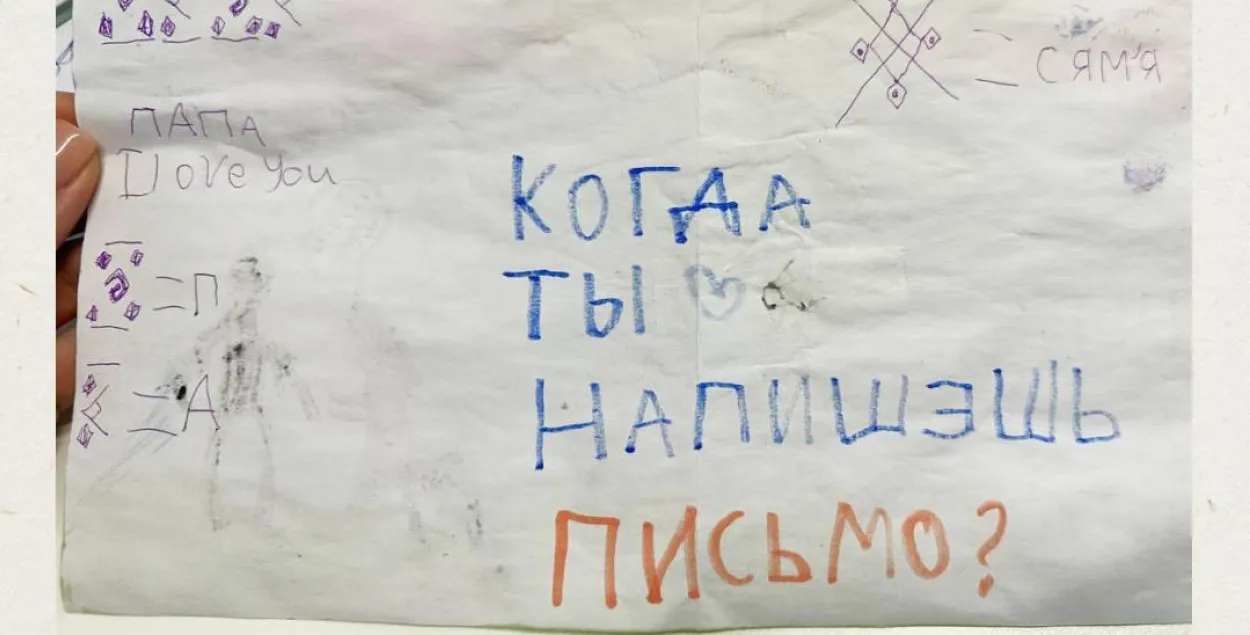 = СЯМ'Я
ПАПА
I love you
КОГДА
ТЫ
= П
= А
НАПИШЭШЬ
ПИСЬМО?